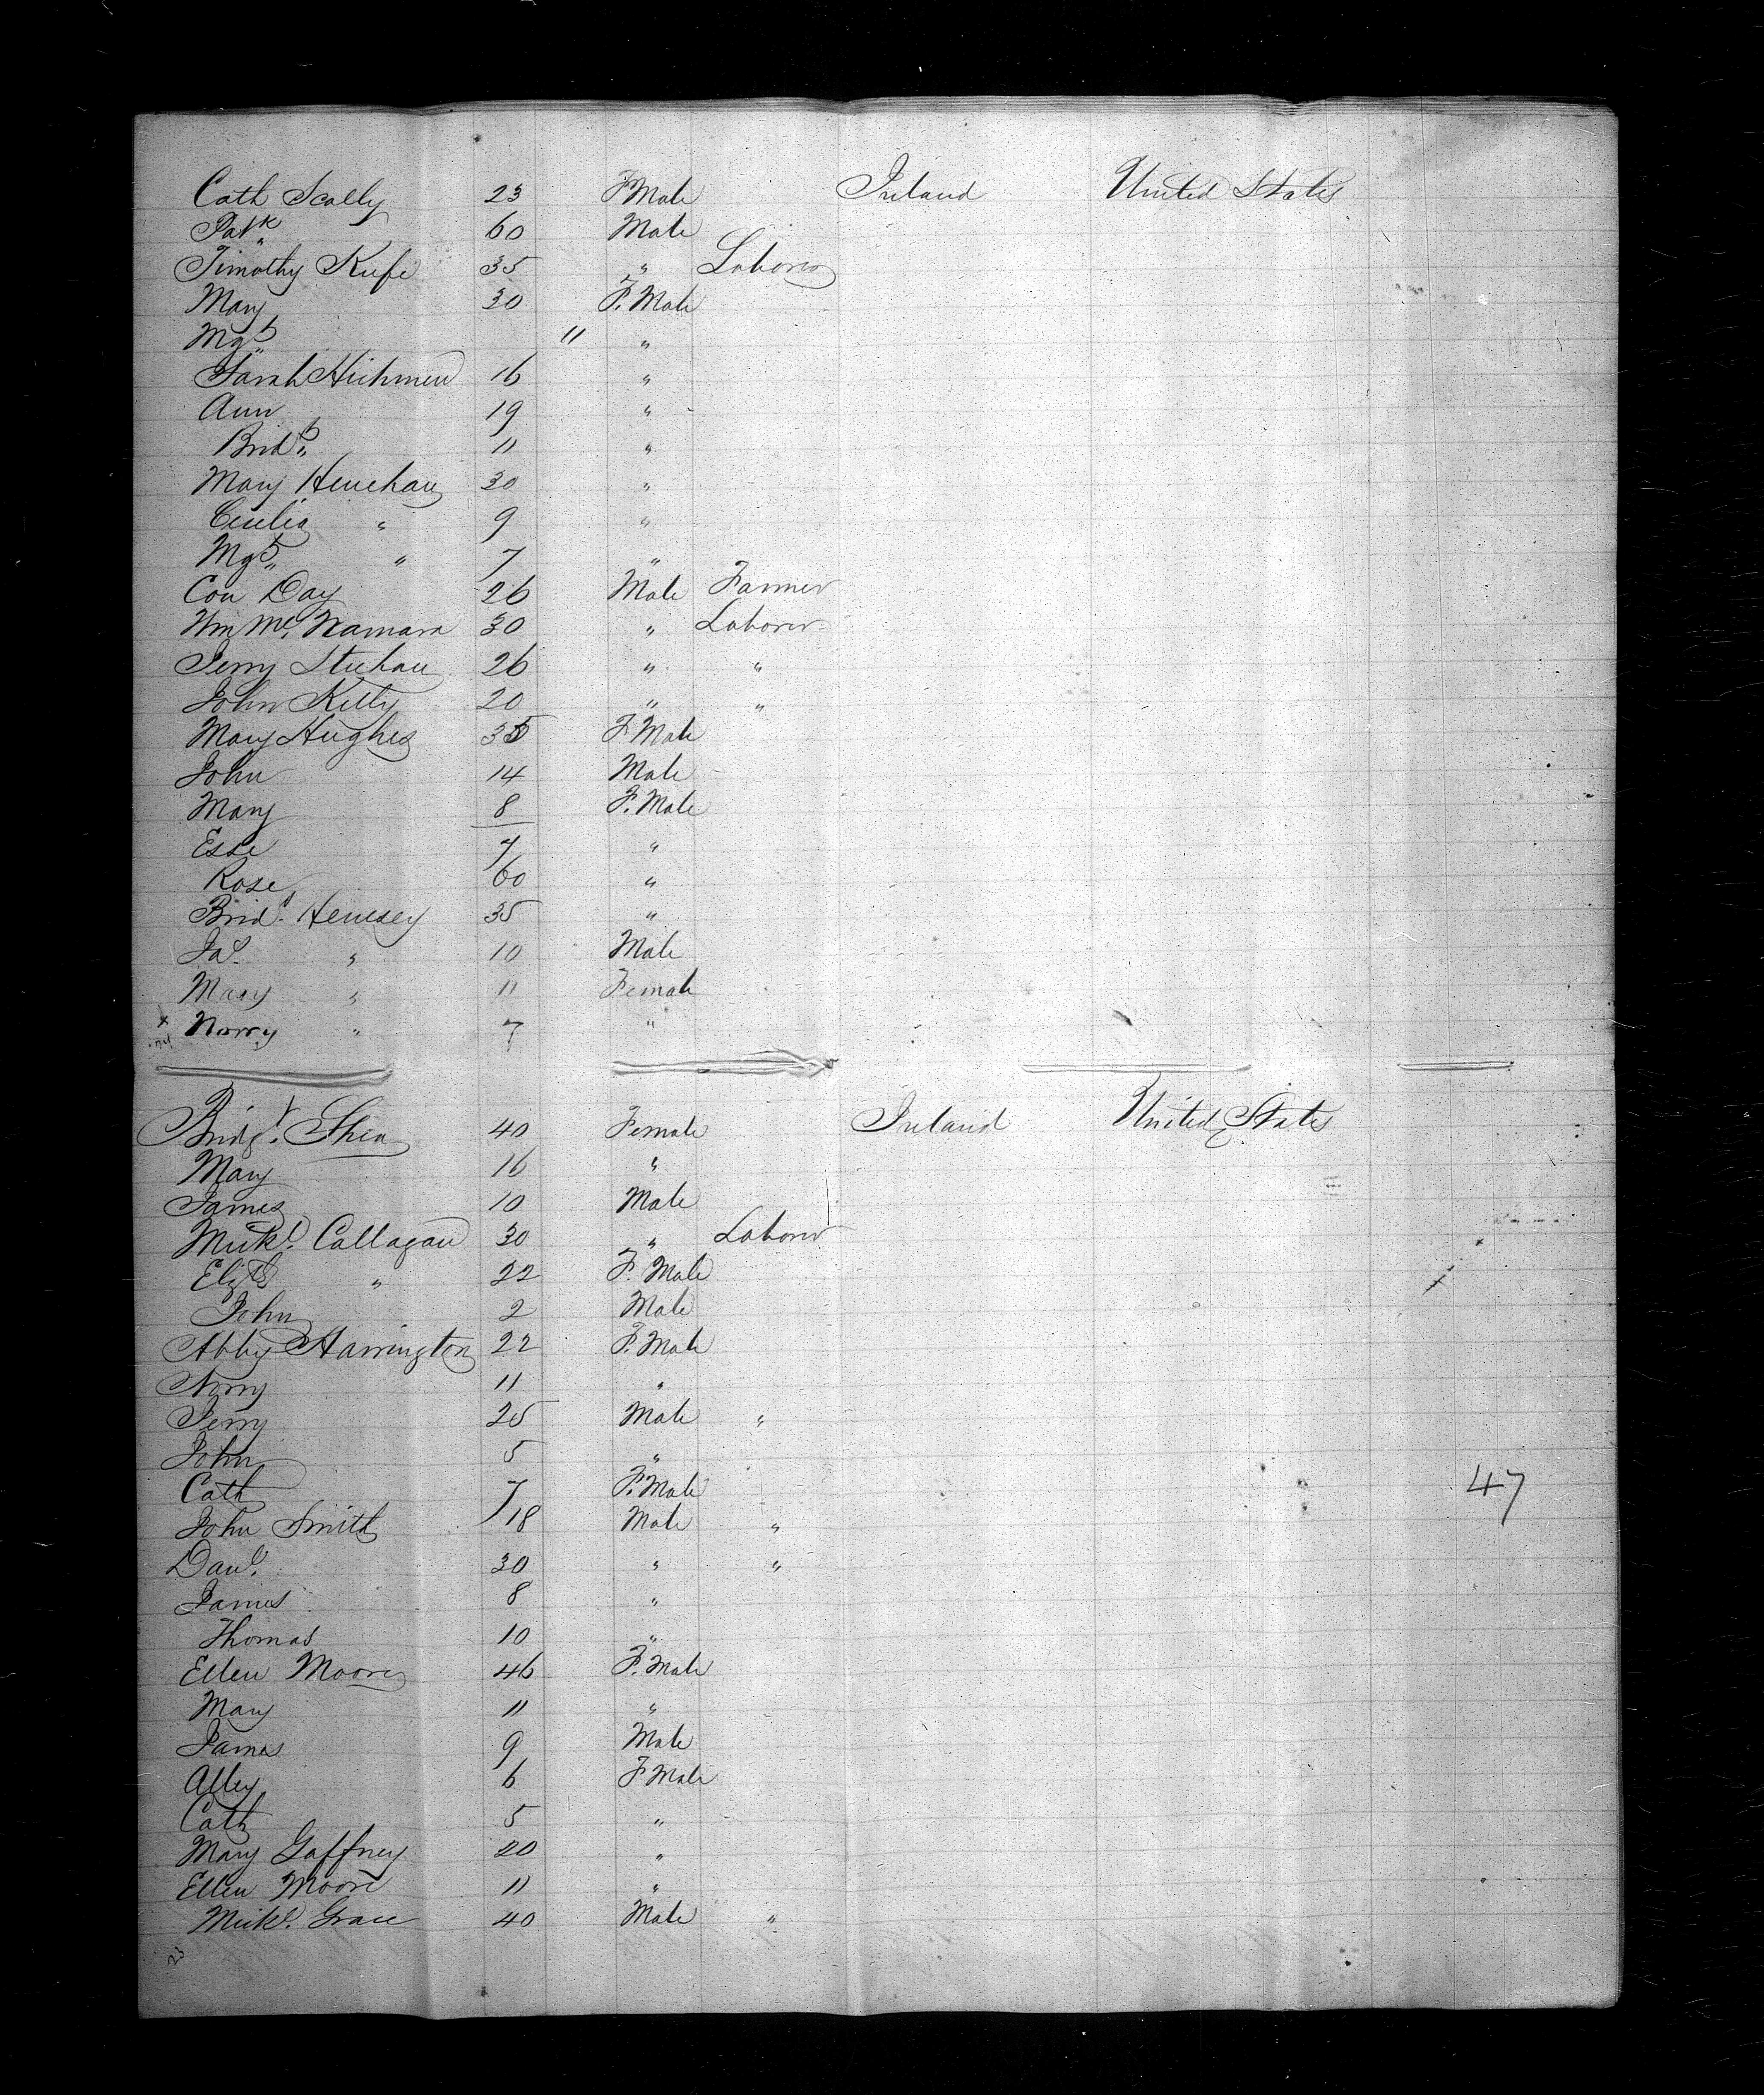 Cath Scally 23 F Male Ireland United States
Patk " 60 Male
Timothy Kufe 35 " Laborer
Mary 30 F. Male
Mgt " 11 "
Sarah Hichmen 16 "
Ann 19 "
Bridt " 11 "
Mary Henehan 30 "
Cecelia " 9 "
Mgt " " 7 "
Con Day 26 Male Farmer
Wm Mc. Namara 30 " Laborer
Jerry Stuhan 26 " "
John Kelly 20 " "
Mary Hughes 35 F Male
John 14 Male
Mary 8 F. Male
Esse 7 "
Rose 60 "
Bridt. Henesey 35 "
Jas. " 10 Male
Mary " 11 Female
x Norry " 7 "
24
Bridgt. Shea 40 Female Ireland United States
Mary 16 "
James 10 Male
Mickl. Callagan 30 " Laborer
Elizth " 22 F. Male
John 2 Male
Abby Harrington 22 F. Male
Norry 11 "
Jerry 25 Male "
John 5 "
Cath 7 F. Male 47
John Smith 18 Male "
Danl. 30 " "
James 8 "
Thomas 10 "
Ellen Moore 46 F. Male
Mary 11 "
James 9 Male
Alley 6 F Male
Cath 5 "
Mary Gaffney 20 "
Ellen Moore 11 "
Mickl. Grace 40 Male "
23